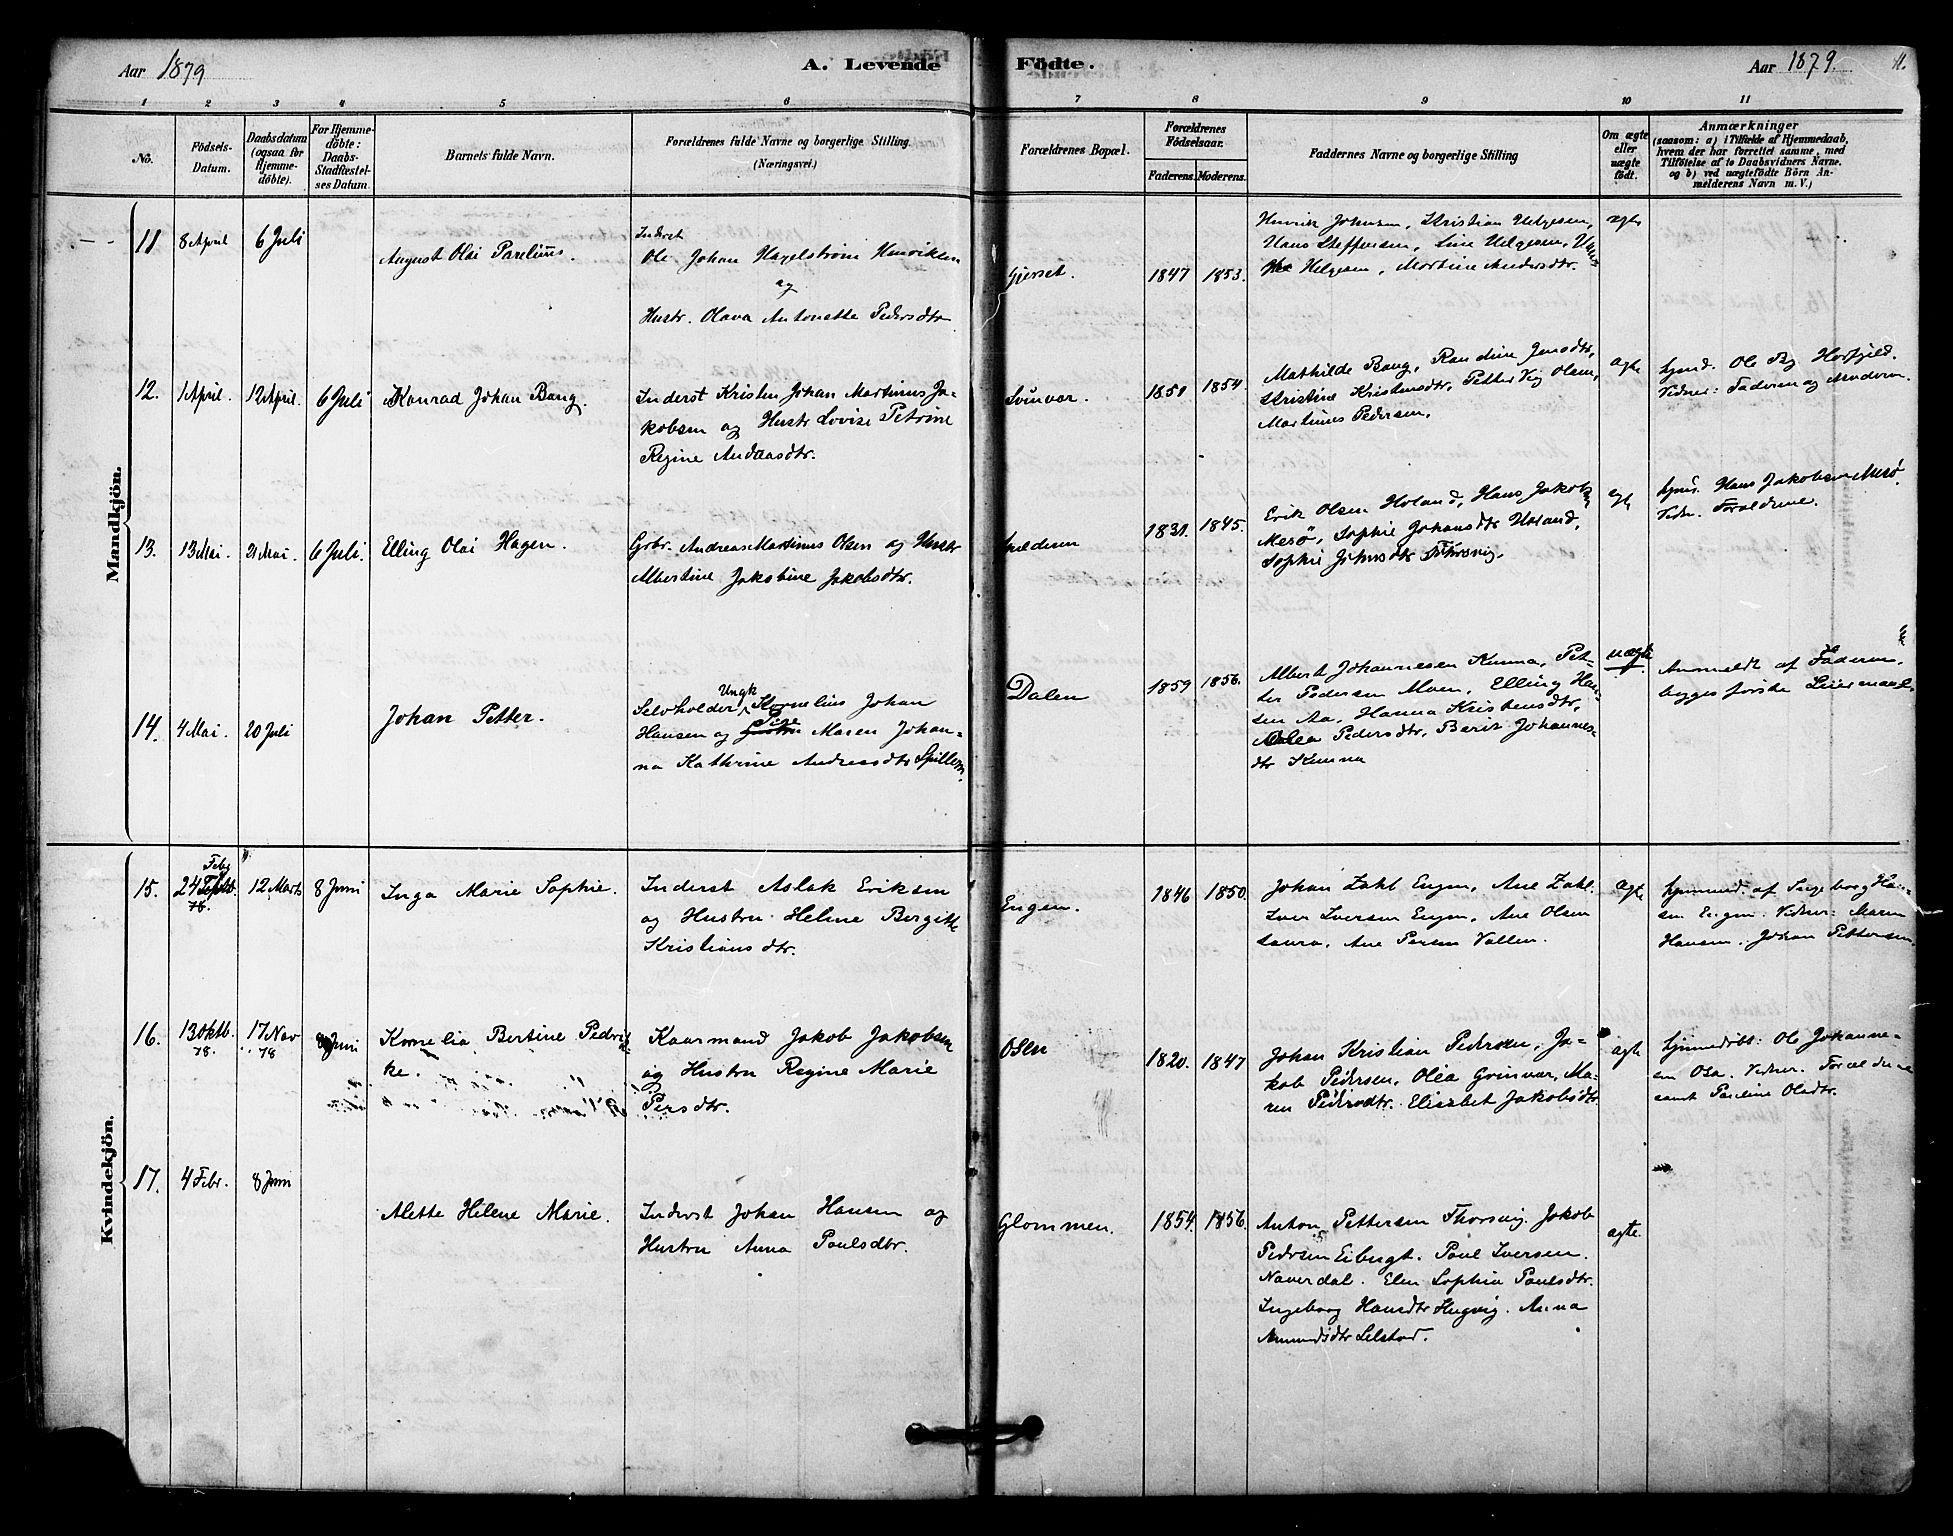 Aar 1879
A. Levende
Födte.
Aar 1879.
1 2 3 4 5 6 7 8 9 10 11
No.
Födsels-
Datum.
Daabsdatum
(ogsaa for
Hjemme-
döbte).
For Hjemme-
döbte:
Daabs-
Stadfæstel-
ses Datum.
Barnets fulde Navn.
Forældrenes fulde Navne og borgerlige Stilling
(Næringsvei.)
Forældrenes Bopæl.
Forældrenes
Födselsaar.
Faderens. Moderens.
Faddernes Navne og borgerlige Stilling
Om ægte
eller
uægte
födt.
Anmærkninger
(saasom: a) i Tilfælde af Hjemmedaab,
hvem der har forrettet samme, med
Tilföielse af to Daabsvidners Navne.
og b) ved uægtefödte Börn An-
melderens Navn m. V.)
Mandkjön.
11 8 April 6 Juli
August Olai Parelius.
Inderst
Ole Johan Hagelstrøm Henriksen
og
Hustr. Olava Antonette Pedersdtr
Gjerset.
1847 1853.
Henrik Johnsen, Kristian Helgesen,
Hans Steffensen, Line Helgesen,
Helgesen, Martine Andersdtr.
ægte
12. 1 April. 12 April. 6 Juli
Konrad Johan Bang
Inderst Kristen Johan Martinus Ja-
kobsen og Hustr Lovise Petrine
Regine Andreasdtr.
Svinvær.
1850 1854.
Mathilde Bang, Randine Jensdtr,
Kristine Kristensdtr, Petter Vig Olsen,
Martinus Pedersen.
ægte
hjmd. Ole Horsfjeld.
Vidner: Faderen og Moderen.
13. 13 Mai. 21 Mai. 6 Juli.
Elling Olai Hagen.
Grbr. Andreas Martinus Olsen og Hustr
Albertine Jakobine Jakobsdtr.
1831. 1845.
Erik Olsen Holand, Hans Jakobs
Mesø, Sophie Johansdtr Holand,
Sophie Johnsdtr Thorsvig.
Hans Jakobsen Mesø.
Vidn. Forældrene.
14. 4 Mai. 20 Juli
Johan Petter.
Selvholder, Ungk Kornelius Johan
Hansen og Pige Maren Johan-
na Kathrine Andreasdtr Spillern.
Dalen
1859 1856.
Albert Johannesen Kunna, Pet-
ter Pedersen Moen, Elling Han-
sen Aa, Hanna Kristensdtr,
Olea Pedersdtr, Berit Johannes-
dtr Kunna
uægte
Anmeldt af Faderen,
begges første Leiermaal.
Kvindekjön.
15. 24 Febr 78. 12 Marts 8 Juni
Inga Marie Sophie.
Inderst Aslak Eriksen
og Hustru Helene Bergitte
Kristiansdtr.
Engen.
1846 1850.
Johan Zahl Engen, Ane Zahl.
Iver Iversen Engen, Ane Olsen
Saura, Ane Persen Vallen.
ægte
hjemmed. af Ingeborg Han-
sen Engen. Vidner: Maren
Hansen. Johan Pettersen.
16. 13 Oktb. 78. 17 Nov 78 8 Juni
Kornelia Bertine Pedrik-
ke.
Kaarmand Jakob Jakobsen
og Hustru Regine Marie
Persdtr.
Osen
1820. 1847
Johan Kristian Pedersen, Ja-
kob Pedersen, Olea Grinvær, Ma-
ren Pedersdtr. Elisabet Jakobsdtr
ægte
hjemmedøbt: Ole Johanne-
sen Osa. Vidner. Forældrene
samt Pauline Olsdtr.
17. 4 Febr. 8 Juni
Alette Helene Marie.
Inderst Johan Hansen og
Hustru Anna Poulsdtr.
Glommen.
1854. 1856.
Anton Pettersen Thorsvig. Jakob
Pedersen Eibugt. Poul Iversen
Naverdal. Elen Sophie Poulsdtr.
Ingeborg Hansdtr Hugvig. Anna
Amundsdtr Selstad.
ægte.